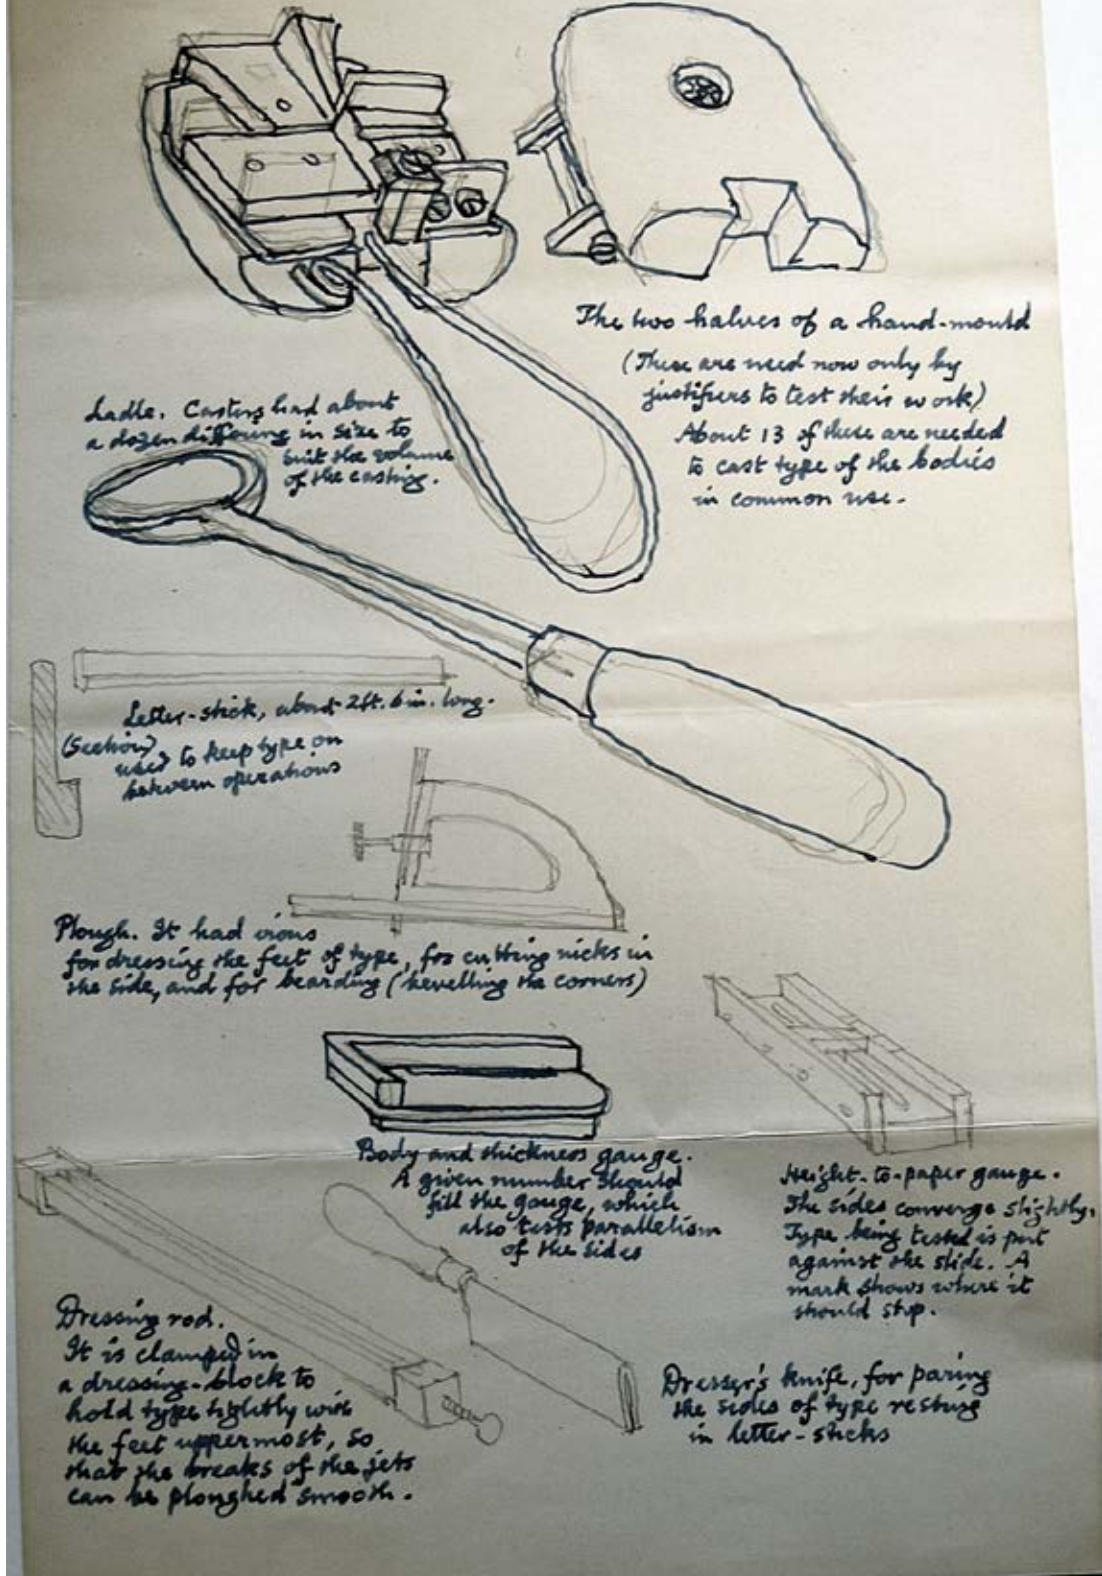 The two halves of a hand-mould
(These are used now only by
justifiers to test their work)
About 13 of these are needed
to cast type of the bodies
in common use.
Ladle. Casters had about
a dozen differing in size to
suit the volume
of the casting.
Letter-stick, about 2ft. 6 in. long.
(Section)
used to keep type on
between operations
Plough. It had irons
for dressing the feet of type, for cutting nicks in
the side, and for bearding (bevelling the corners)
Body and thickness gauge.
A given number should
fill the gauge, which
also tests parallelism
of the sides
Height-to-paper gauge.
The sides converge slightly.
Type being tested is put
against the slide. A
mark shows where it
should stop.
Dressing rod.
It is clamped in
a dressing-block to
hold type tightly with
the feet uppermost, so
that the breaks of the jets
can be ploughed smooth.
Dresser's knife, for paring
the sides of type resting
in letter-sticks